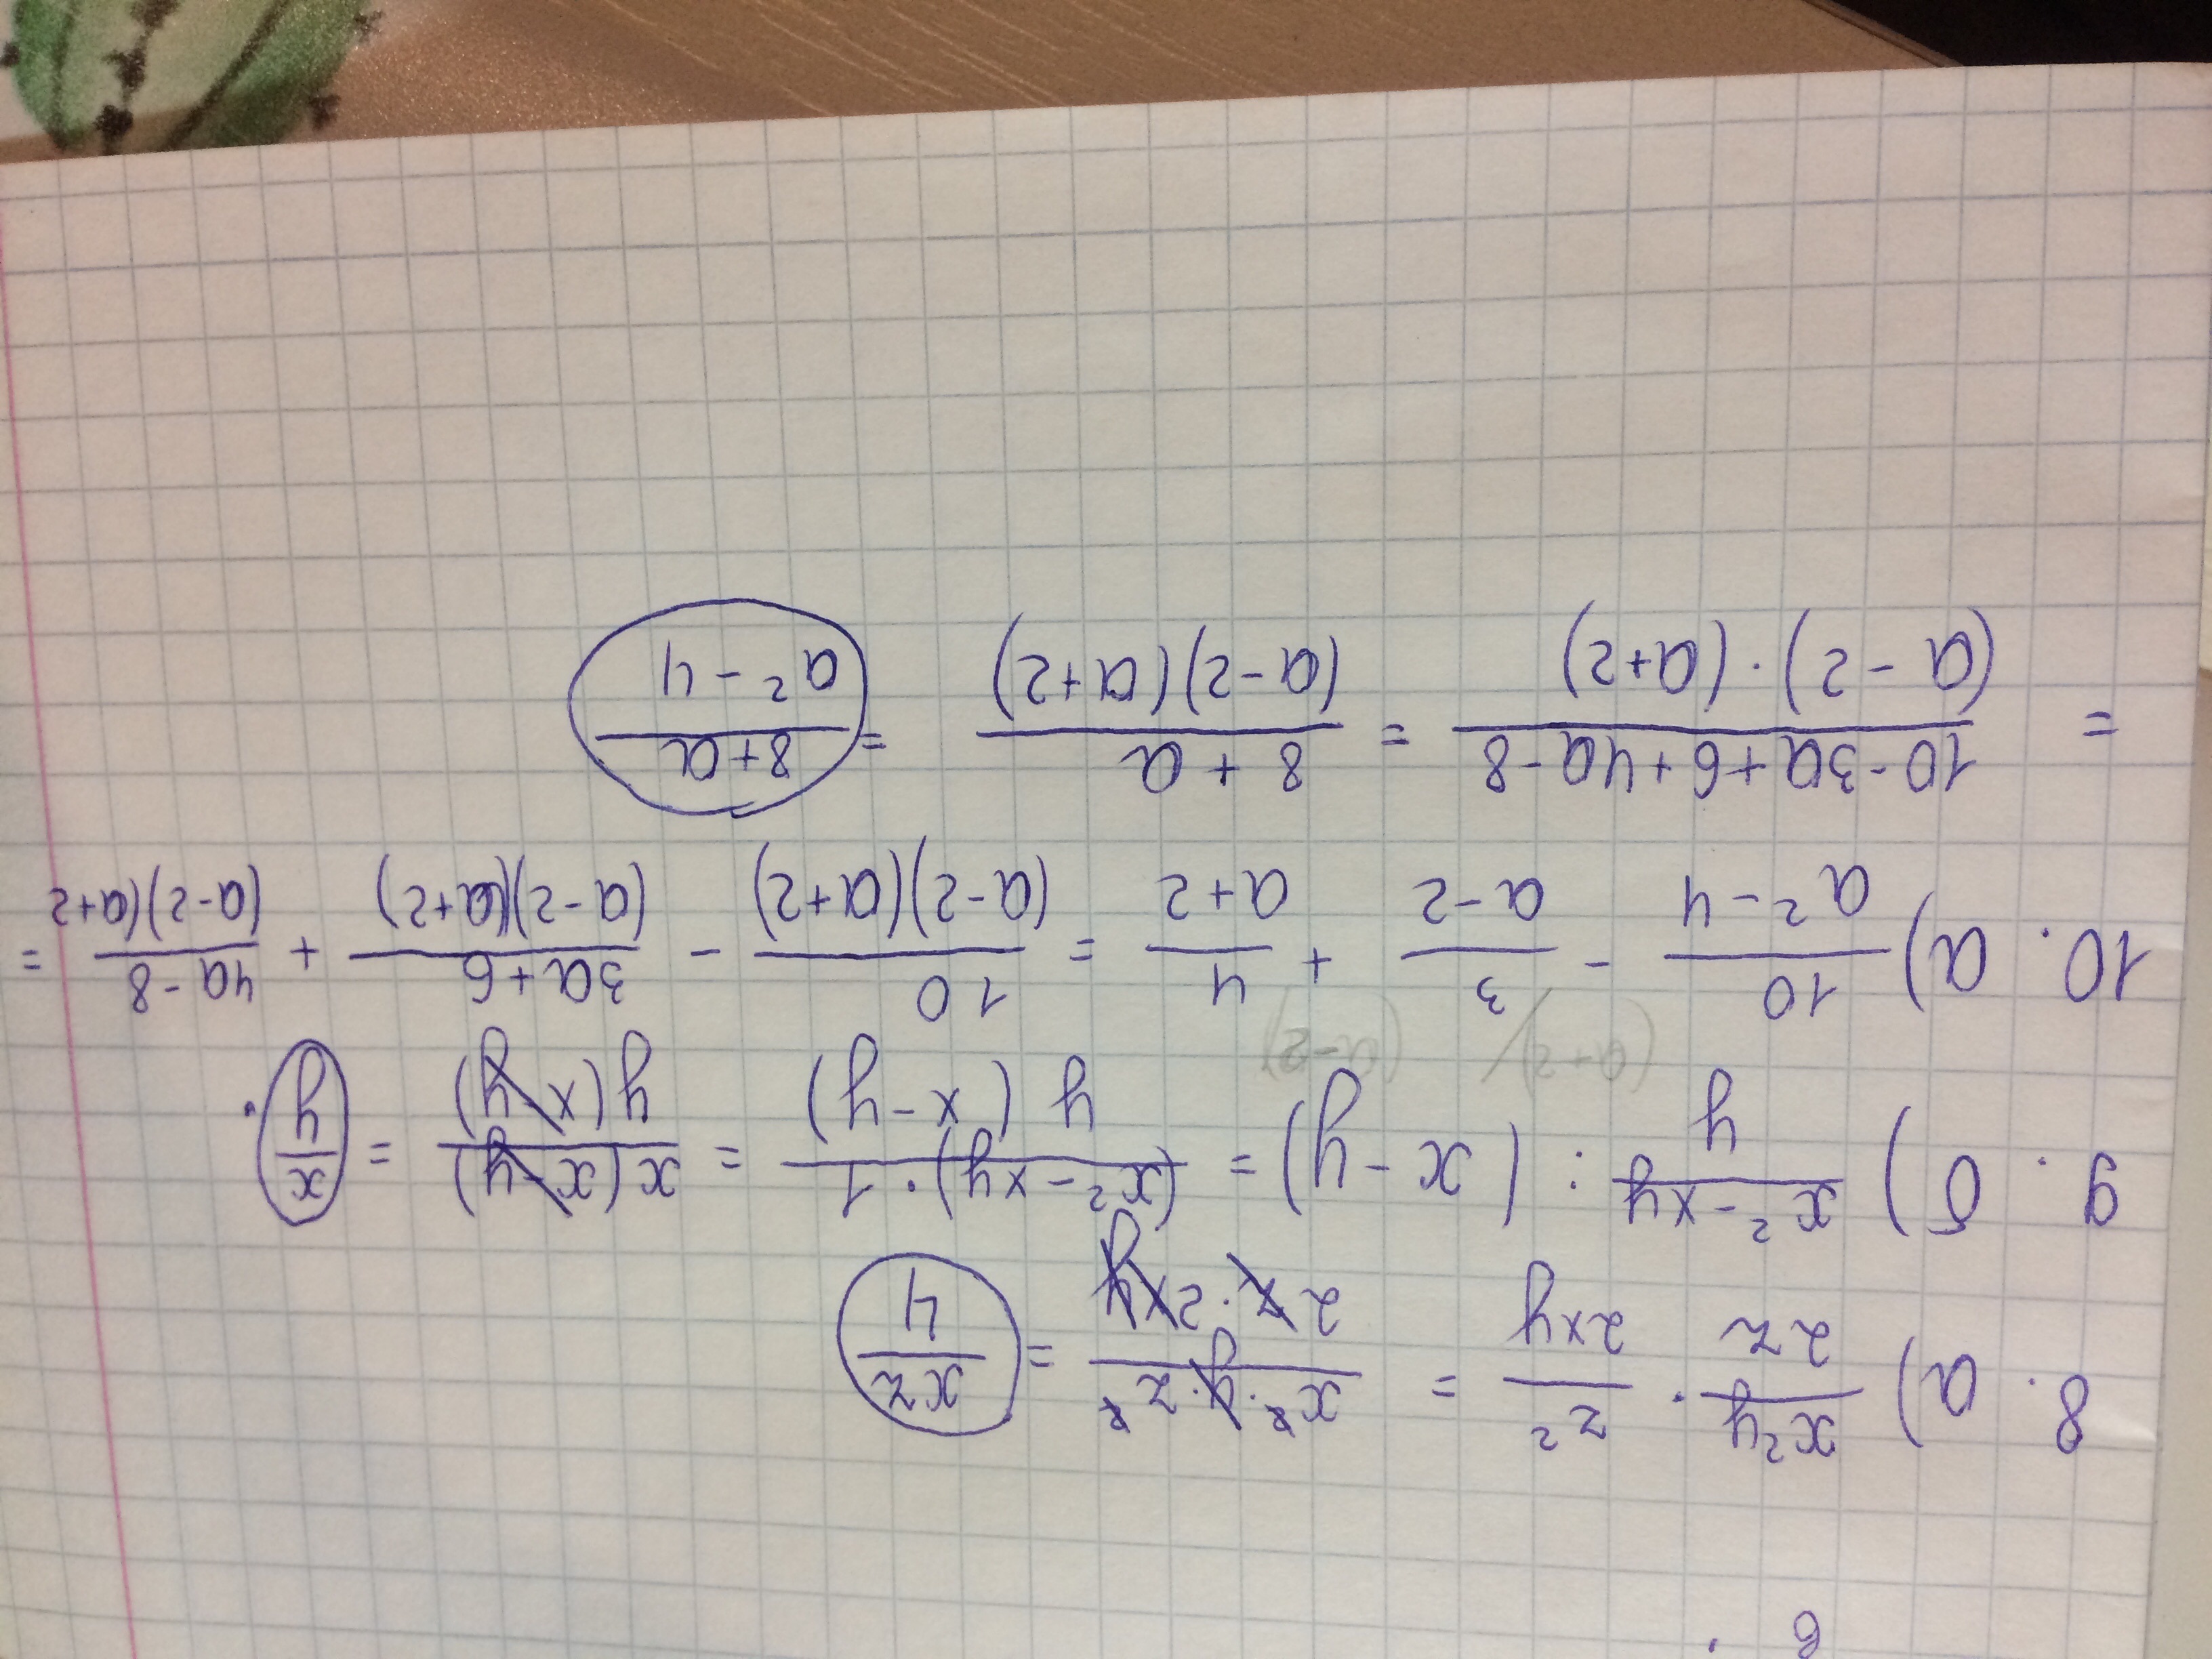 8. a) x²y/2z · z²/2xy = x²·y·z²/2z·2xy = xz/4
9. б) x²-xy/y : (x-y) = (x²-xy)·1/y(x-y) = x(x-y)/y(x-y) = x/y.
(a+2) (a-2)
10. a) 10/a²-4 - 3/a-2 + 4/a+2 = 10/(a-2)(a+2) - 3a+6/(a-2)(a+2) + 4a-8/(a-2)(a+2 =
= 10-3a+6+4a-8/(a-2)·(a+2) = 8+a/(a-2)(a+2) = 8+a/a²-4